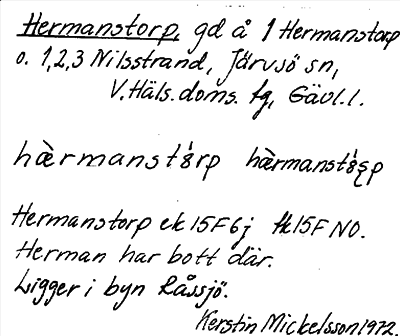 Hermanstorp, gd å 1 Hermanstorp
o. 1,2,3 Nilsstrand, Järvsö sn,
V. Häls. doms. fg, Gävl. l.
hæ̀rmanst8́rp hæ̀rmanst8́rp
Hermanstorp ek 15F6j fk 15F NO.
Herman har bott där.
Ligger i byn Råssjö.
Kerstin Mickelsson 1972.